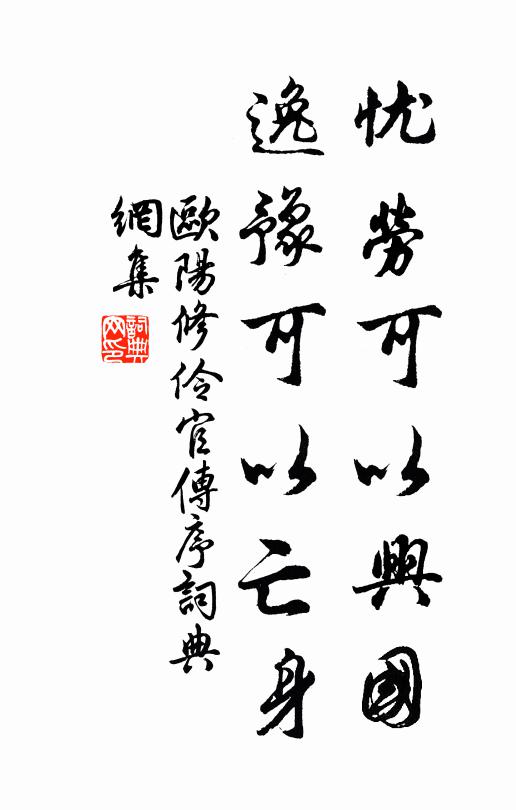 忧勞可以興國
逸豫可以亡身
歐陽修伶官傳序詞典
網集
詞典网印